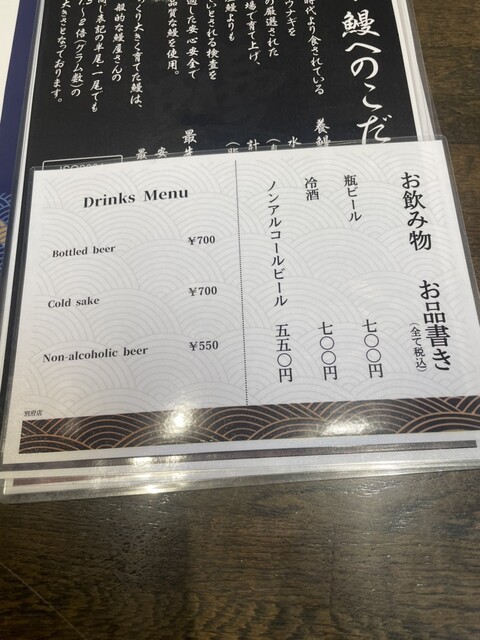 鰻へのこだ
時代より食されている
ウナギを
の厳選された
場で育て上げ、
鰻よりも
いとされる検査を
過した安心安全で
品質な鰻を使用。
くり大きく育てた鰻は、
般的な鰻屋さんの
同じ表記の半尾一尾でも
倍(グラム数)の
大きさとなっております。
養鰻
Drinks Menu
Bottled beer ¥700
Cold sake ¥700
Non-alcoholic beer ¥550
お飲み物 お品書き
(全て税込)
瓶ビール 七〇〇円
冷酒 七〇〇円
ノンアルコールビール 五五〇円
別府店